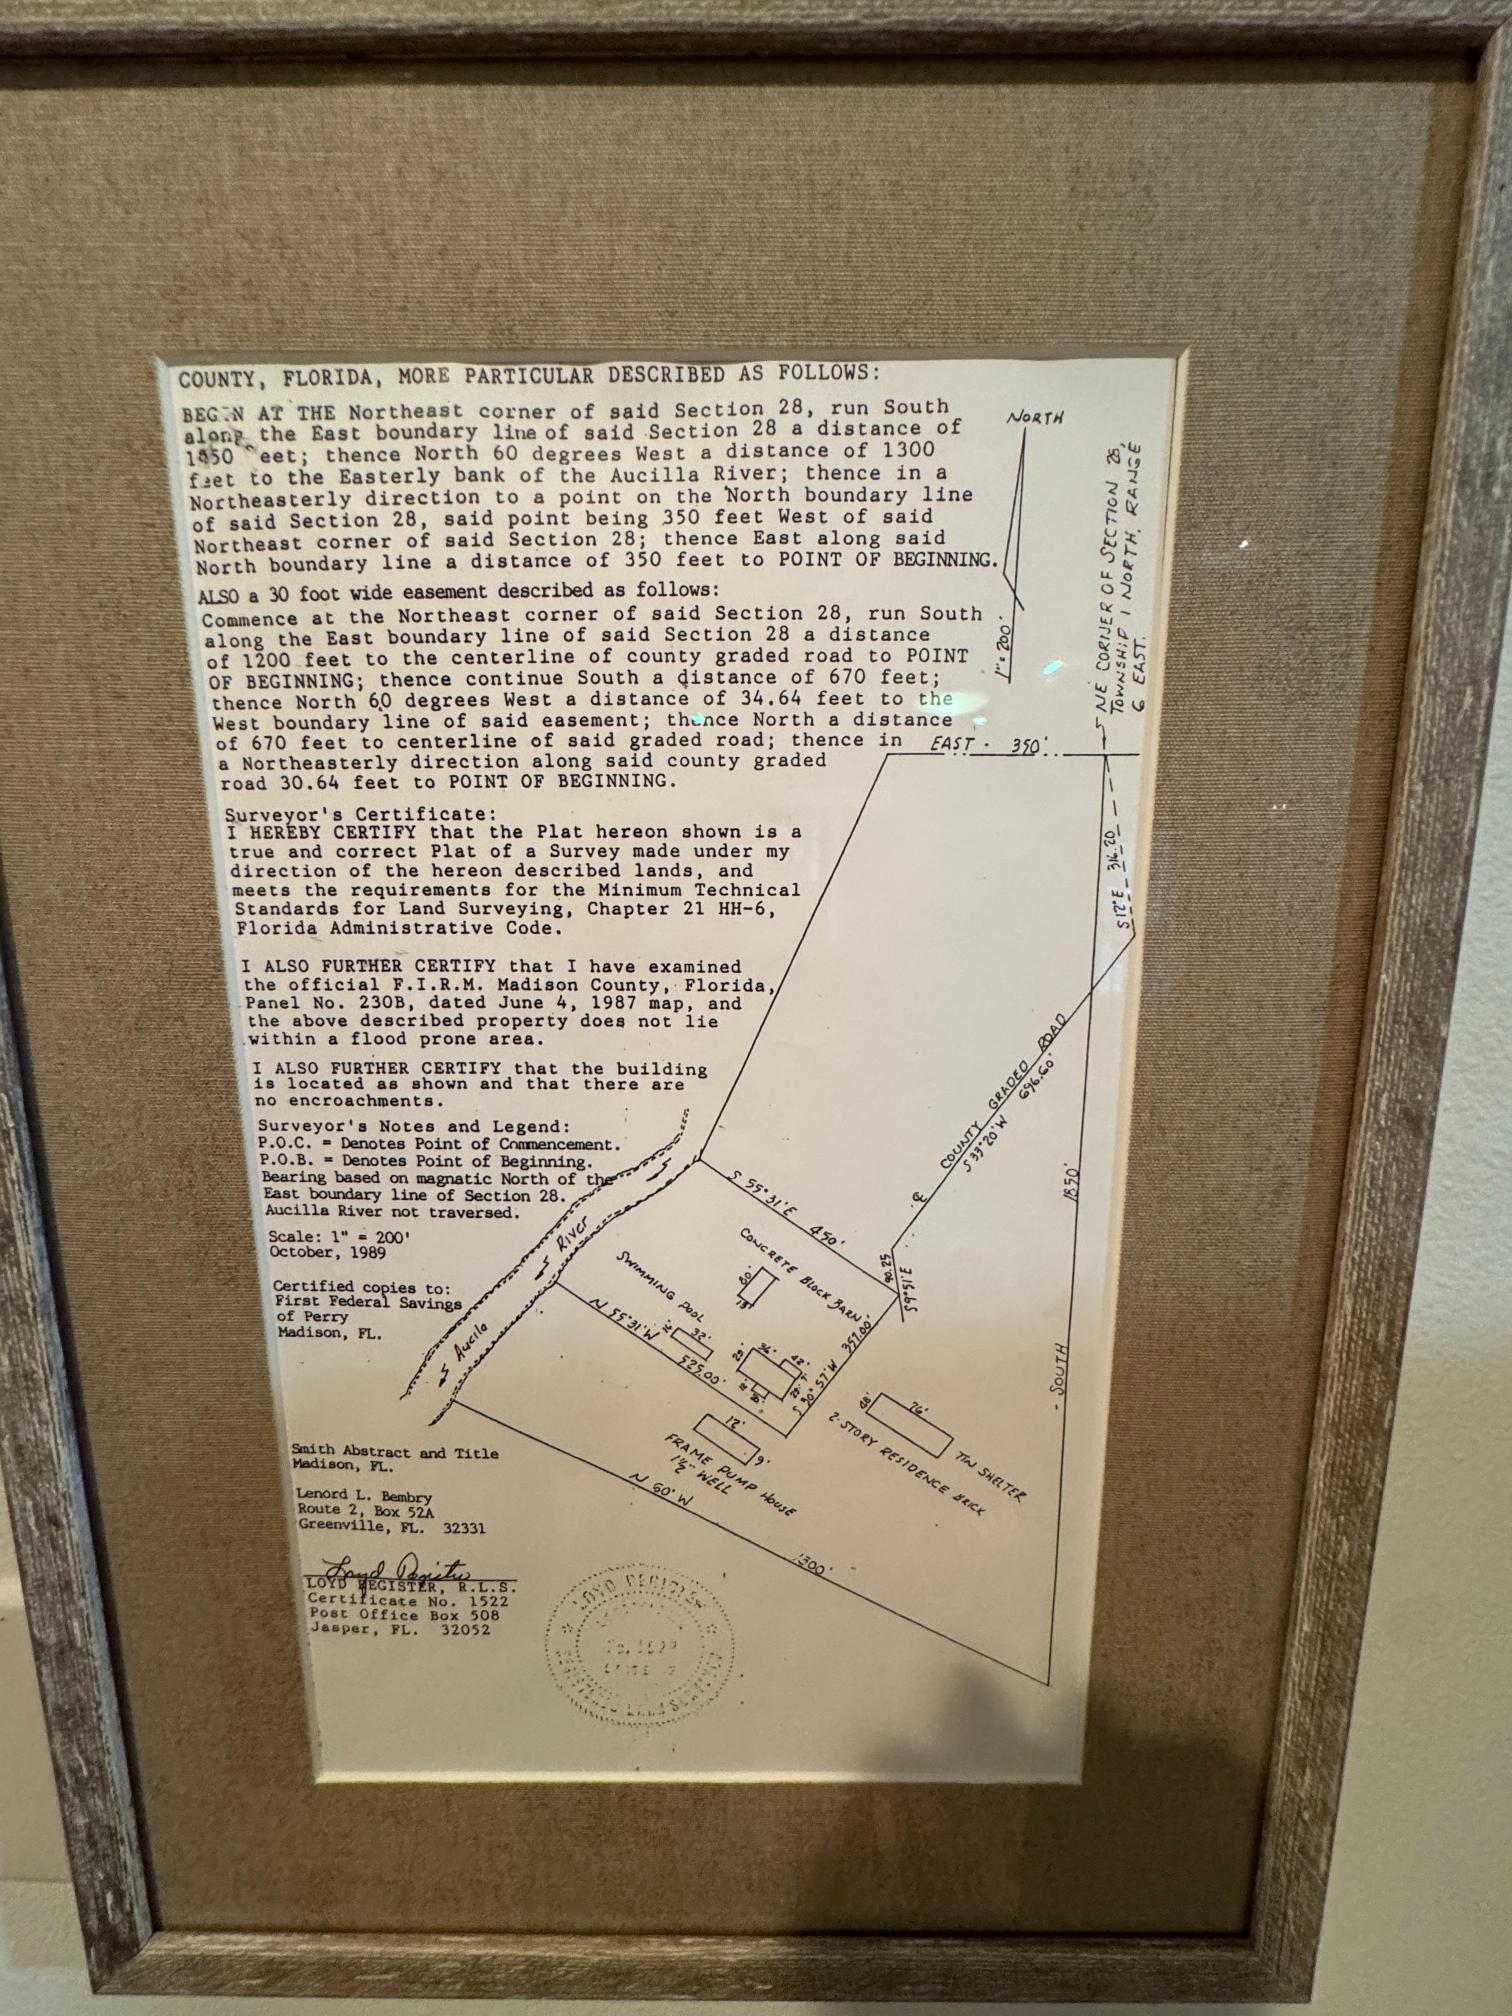 COUNTY, FLORIDA, MORE PARTICULAR DESCRIBED AS FOLLOWS:
BEGIN AT THE Northeast corner of said Section 28, run South
along the East boundary line of said Section 28 a distance of
1850 feet; thence North 60 degrees West a distance of 1300
feet to the Easterly bank of the Aucilla River; thence in a
Northeasterly direction to a point on the North boundary line
of said Section 28, said point being 350 feet West of said
Northeast corner of said Section 28; thence East along said
North boundary line a distance of 350 feet to POINT OF BEGINNING.
ALSO a 30 foot wide easement described as follows:
Commence at the Northeast corner of said Section 28, run South
along the East boundary line of said Section 28 a distance
of 1200 feet to the centerline of county graded road to POINT
OF BEGINNING; thence continue South a distance of 670 feet;
thence North 60 degrees West a distance of 34.64 feet to the
West boundary line of said easement; thence North a distance
of 670 feet to centerline of said graded road; thence in
a Northeasterly direction along said county graded
road 30.64 feet to POINT OF BEGINNING.
Surveyor's Certificate:
I HEREBY CERTIFY that the Plat hereon shown is a
true and correct Plat of a Survey made under my
direction of the hereon described lands, and
meets the requirements for the Minimum Technical
Standards for Land Surveying, Chapter 21 HH-6,
Florida Administrative Code.
I ALSO FURTHER CERTIFY that I have examined
the official F.I.R.M. Madison County, Florida,
Panel No. 230B, dated June 4, 1987 map, and
the above described property does not lie
within a flood prone area.
I ALSO FURTHER CERTIFY that the building
is located as shown and that there are
no encroachments.
Surveyor's Notes and Legend:
P.O.C. = Denotes Point of Commencement.
P.O.B. = Denotes Point of Beginning.
Bearing based on magnatic North of the
East boundary line of Section 28.
Aucilla River not traversed.
Scale: 1" = 200'
October, 1989
Certified copies to:
First Federal Savings
of Perry
Madison, FL.
Smith Abstract and Title
Madison, FL.
Lenord L. Bembry
Route 2, Box 52A
Greenville, FL. 32331
Loyd Register
LOYD REGISTER, R.L.S.
Certificate No. 1522
Post Office Box 508
Jasper, FL. 32052
LOYD REGISTER
NORTH
1" = 200'
NE CORNER OF SECTION 28,
TOWNSHIP 1 NORTH, RANGE
6 EAST.
EAST - 350'
S12°E 316.20
COUNTY GRADED ROAD
S 33°20'W 696.60'
1850'
SOUTH
S 55°31'E 450'
90.25
S9°51'E
CONCRETE BLOCK BARN
SWIMMING POOL
32'
N 55°31'W 525.00'
36'
42'
357.00'
FRAME PUMP HOUSE
1½" WELL
12'
9'
76'
48'
TIN SHELTER
2-STORY RESIDENCE BRICK
Aucila River
N 60° W
1300'